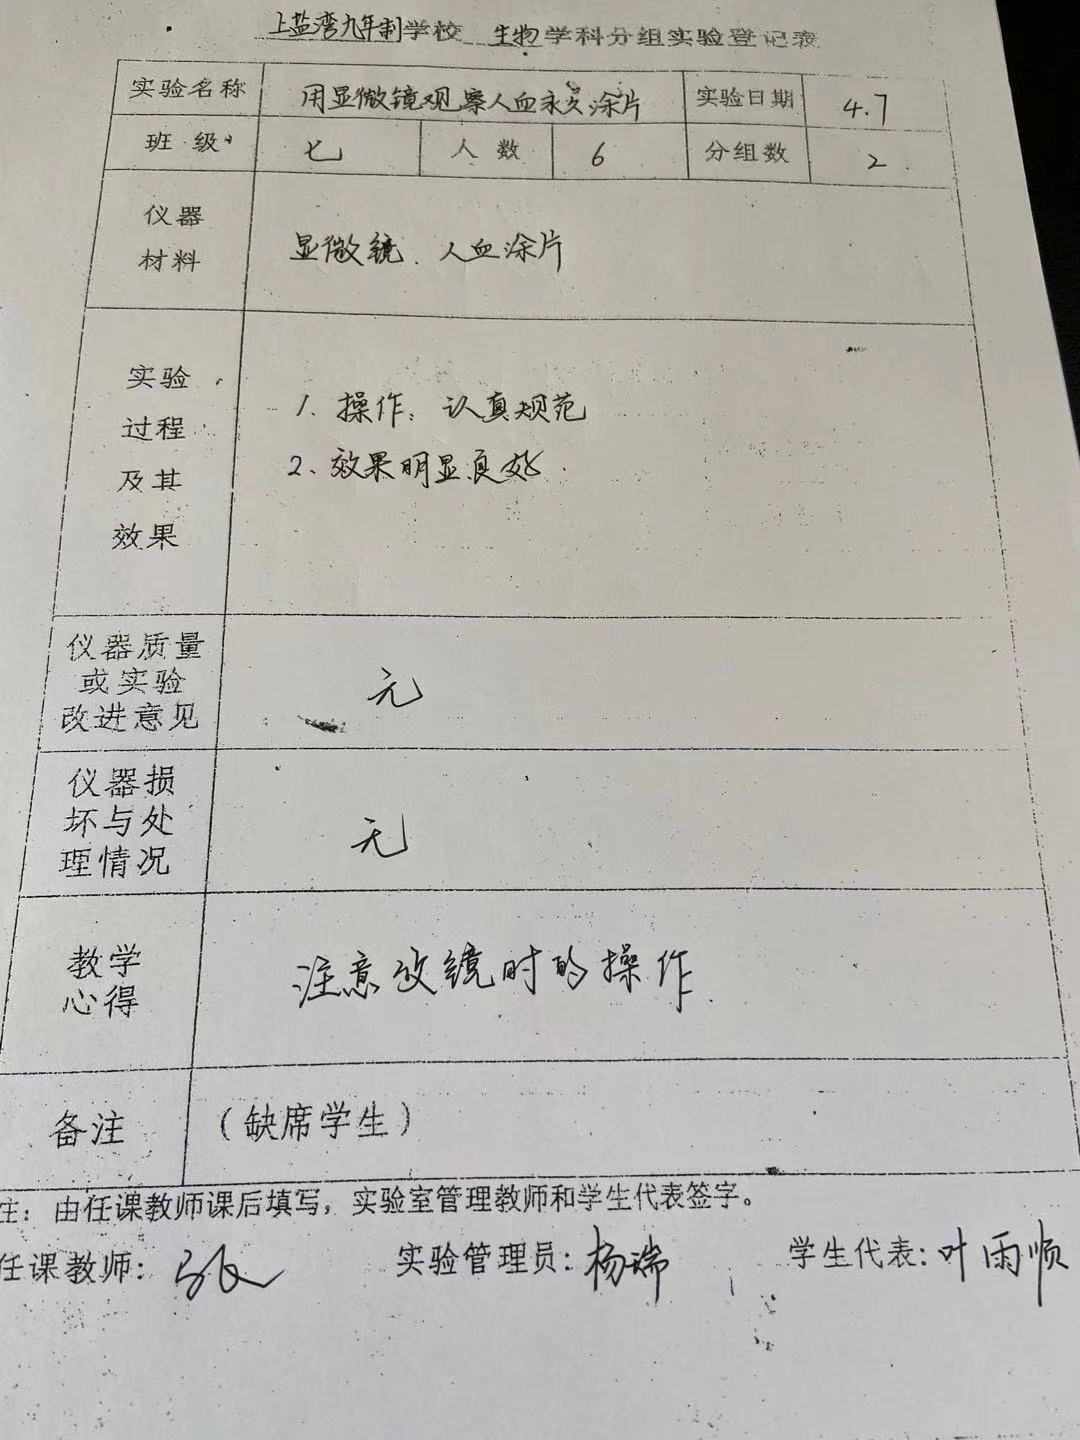 上盐湾九年制学校 生物学科分组实验登记表
实验名称 用显微镜观察人血永久涂片 实验日期 4.7
班级 七 人数 6 分组数 2
仪器
材料
显微镜、人血涂片
实验
过程
及其
效果
1、操作:认真规范
2、效果明显良好.
仪器质量
或实验
改进意见
无
仪器损
坏与处
理情况
无
教学
心得
注意改镜时的操作.
备注 (缺席学生)
注:由任课教师课后填写,实验室管理教师和学生代表签字。
任课教师: 实验管理员:杨瑞 学生代表:叶雨顺